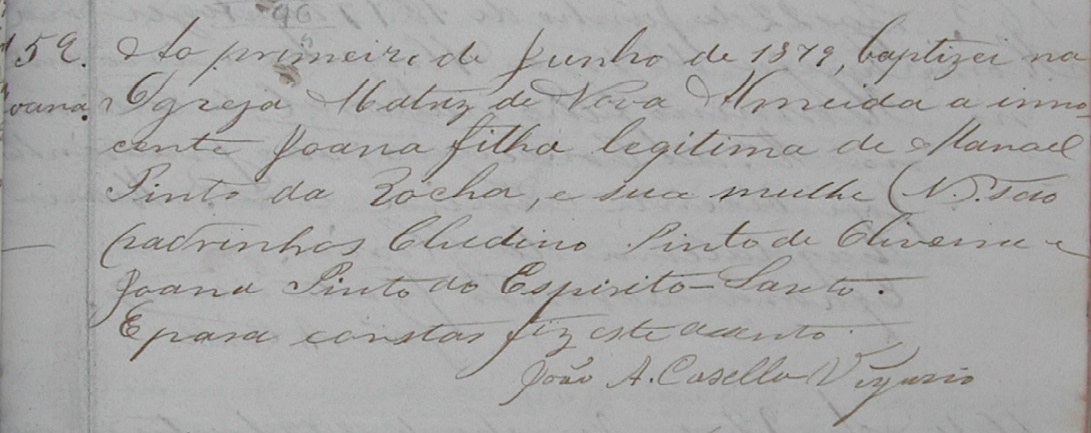 159. Ao primeiro de Junho de 1879, baptizei na
Joana. Igreja Matriz de Nova Almeida a inno-
cente Joana filha legitima de Manoel
Pinto da Rocha, e sua mulhe (N. são
padrinhos Cludino Pinto de Oliveira e
Joana Pinto do Espirito-Santo.
E para constar fiz este acento.
João A. Casella Vigario